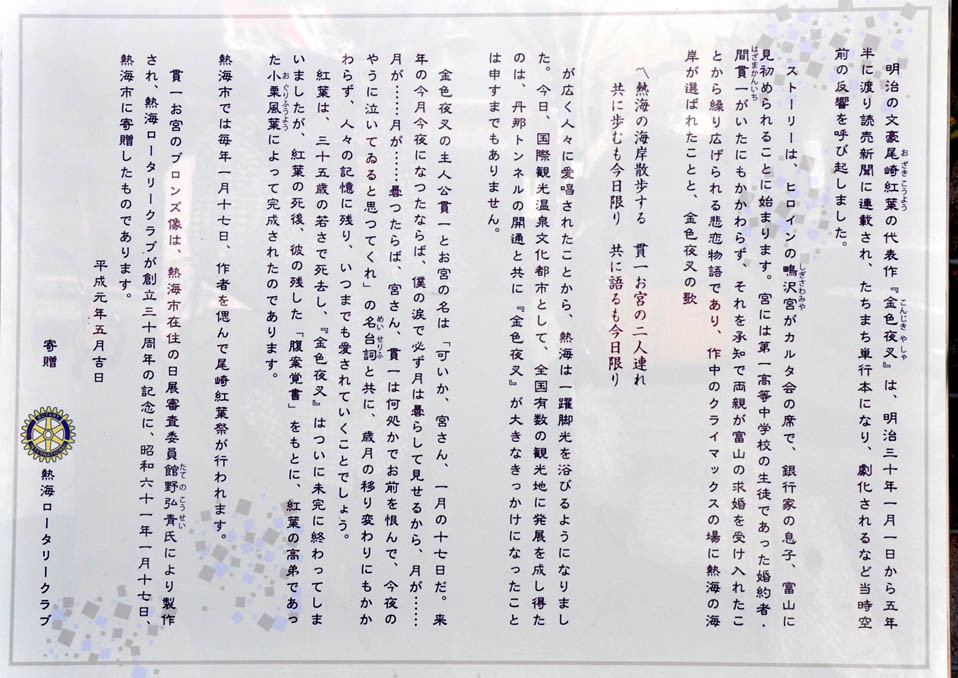 明治の文豪尾崎紅葉の代表作『金色夜叉』は、明治三十年一月一日から五年
半に渡り読売新聞に連載され、たちまち単行本になり、劇化されるなど当時空
前の反響を呼び起しました。
ストーリーは、ヒロインの鴫沢宮がカルタ会の席で、銀行家の息子、富山に
見初められることに始まります。宮には第一高等中学校の生徒であった婚約者・
間貫一がいたにもかかわらず、それを承知で両親が富山の求婚を受け入れたこ
とから繰り広げられる悲恋物語であり、作中のクライマックスの場に熱海の海
岸が選ばれたことと、金色夜叉の歌
〽熱海の海岸散歩する 貫一お宮の二人連れ
共に歩むも今日限り 共に語るも今日限り
が広く人々に愛唱されたことから、熱海は一躍脚光を浴びるようになりまし
た。今日、国際観光温泉文化都市として、全国有数の観光地に発展を成し得た
のは、丹那トンネルの開通と共に『金色夜叉』が大きなきっかけになったこと
は申すまでもありません。
金色夜叉の主人公貫一とお宮の名は「可いか、宮さん、一月の十七日だ。来
年の今月今夜になつたならば、僕の涙で必ず月は曇らして見せるから、月が……
月が……月が……曇つたらば、宮さん、貫一は何処かでお前を恨んで、今夜の
やうに泣いてゐると思つてくれ」の名台詞と共に、歳月の移り変わりにもかか
わらず、人々の記憶に残り、いつまでも愛されていくことでしょう。
紅葉は、三十五歳の若さで死去し、『金色夜叉』はついに未完に終わってしま
いましたが、紅葉の死後、彼の残した「腹案覚書」をもとに、紅葉の高弟であっ
た小栗風葉によって完成されたのであります。
熱海市では毎年一月十七日、作者を偲んで尾崎紅葉祭が行われます。
貫一お宮のブロンズ像は、熱海市在住の日展審査委員館野弘青氏により製作
され、熱海ロータリークラブが創立三十周年の記念に、昭和六十一年一月十七日、
熱海市に寄贈したものであります。
平成元年五月吉日
寄贈 熱海ロータリークラブ